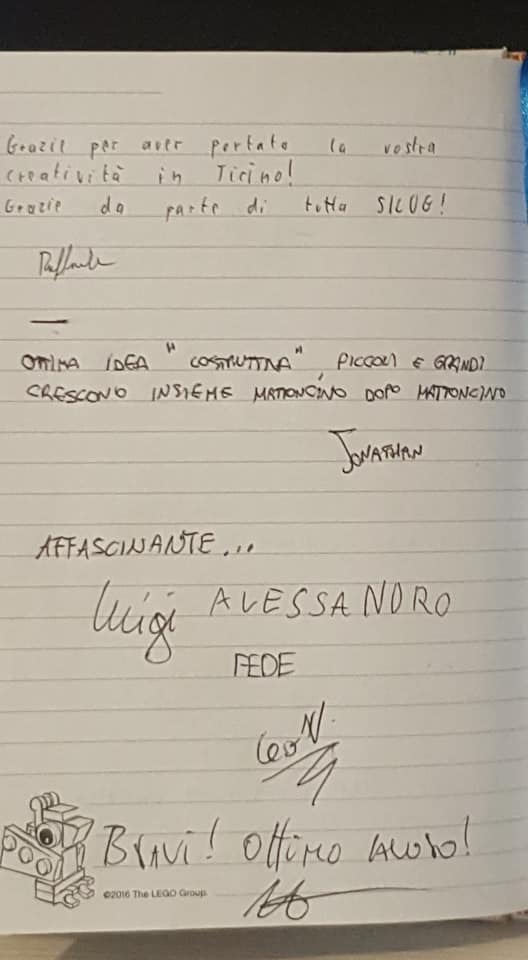 Grazie per aver portato la vostra
creatività in Ticino!
Grazie da parte di tutta SILUG!
Raffaele
OTTIMA IDEA "COSTRUTTIVA", PICCOLI E GRANDI
CRESCONO INSIEME MATTONCINO DOPO MATTONCINO
JONATHAN
AFFASCINANTE...
Luigi ALESSANDRO
FEDE
Leo N.
BRAVI! OTTIMO LAVORO!
©2016 The LEGO Group.